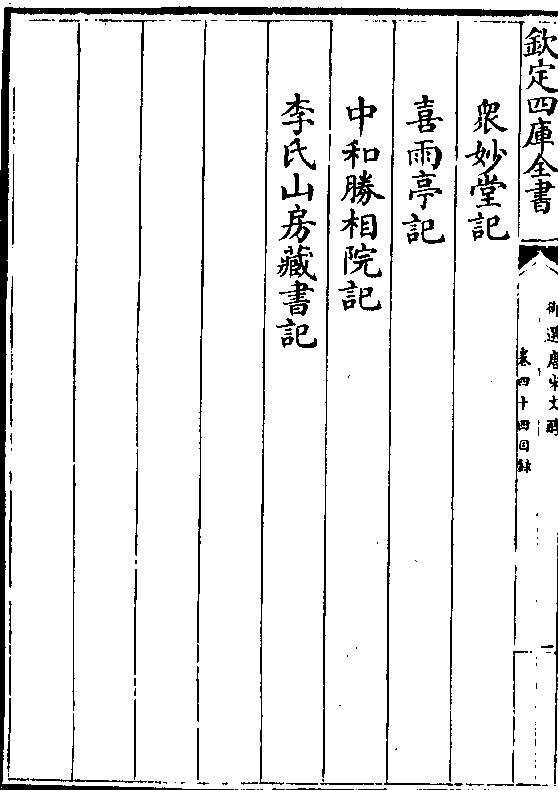 欽定四庫全書
御選唐宋文醇
卷四十四目錄
一
眾妙堂記
喜雨亭記
中和勝相院記
李氏山房藏書記